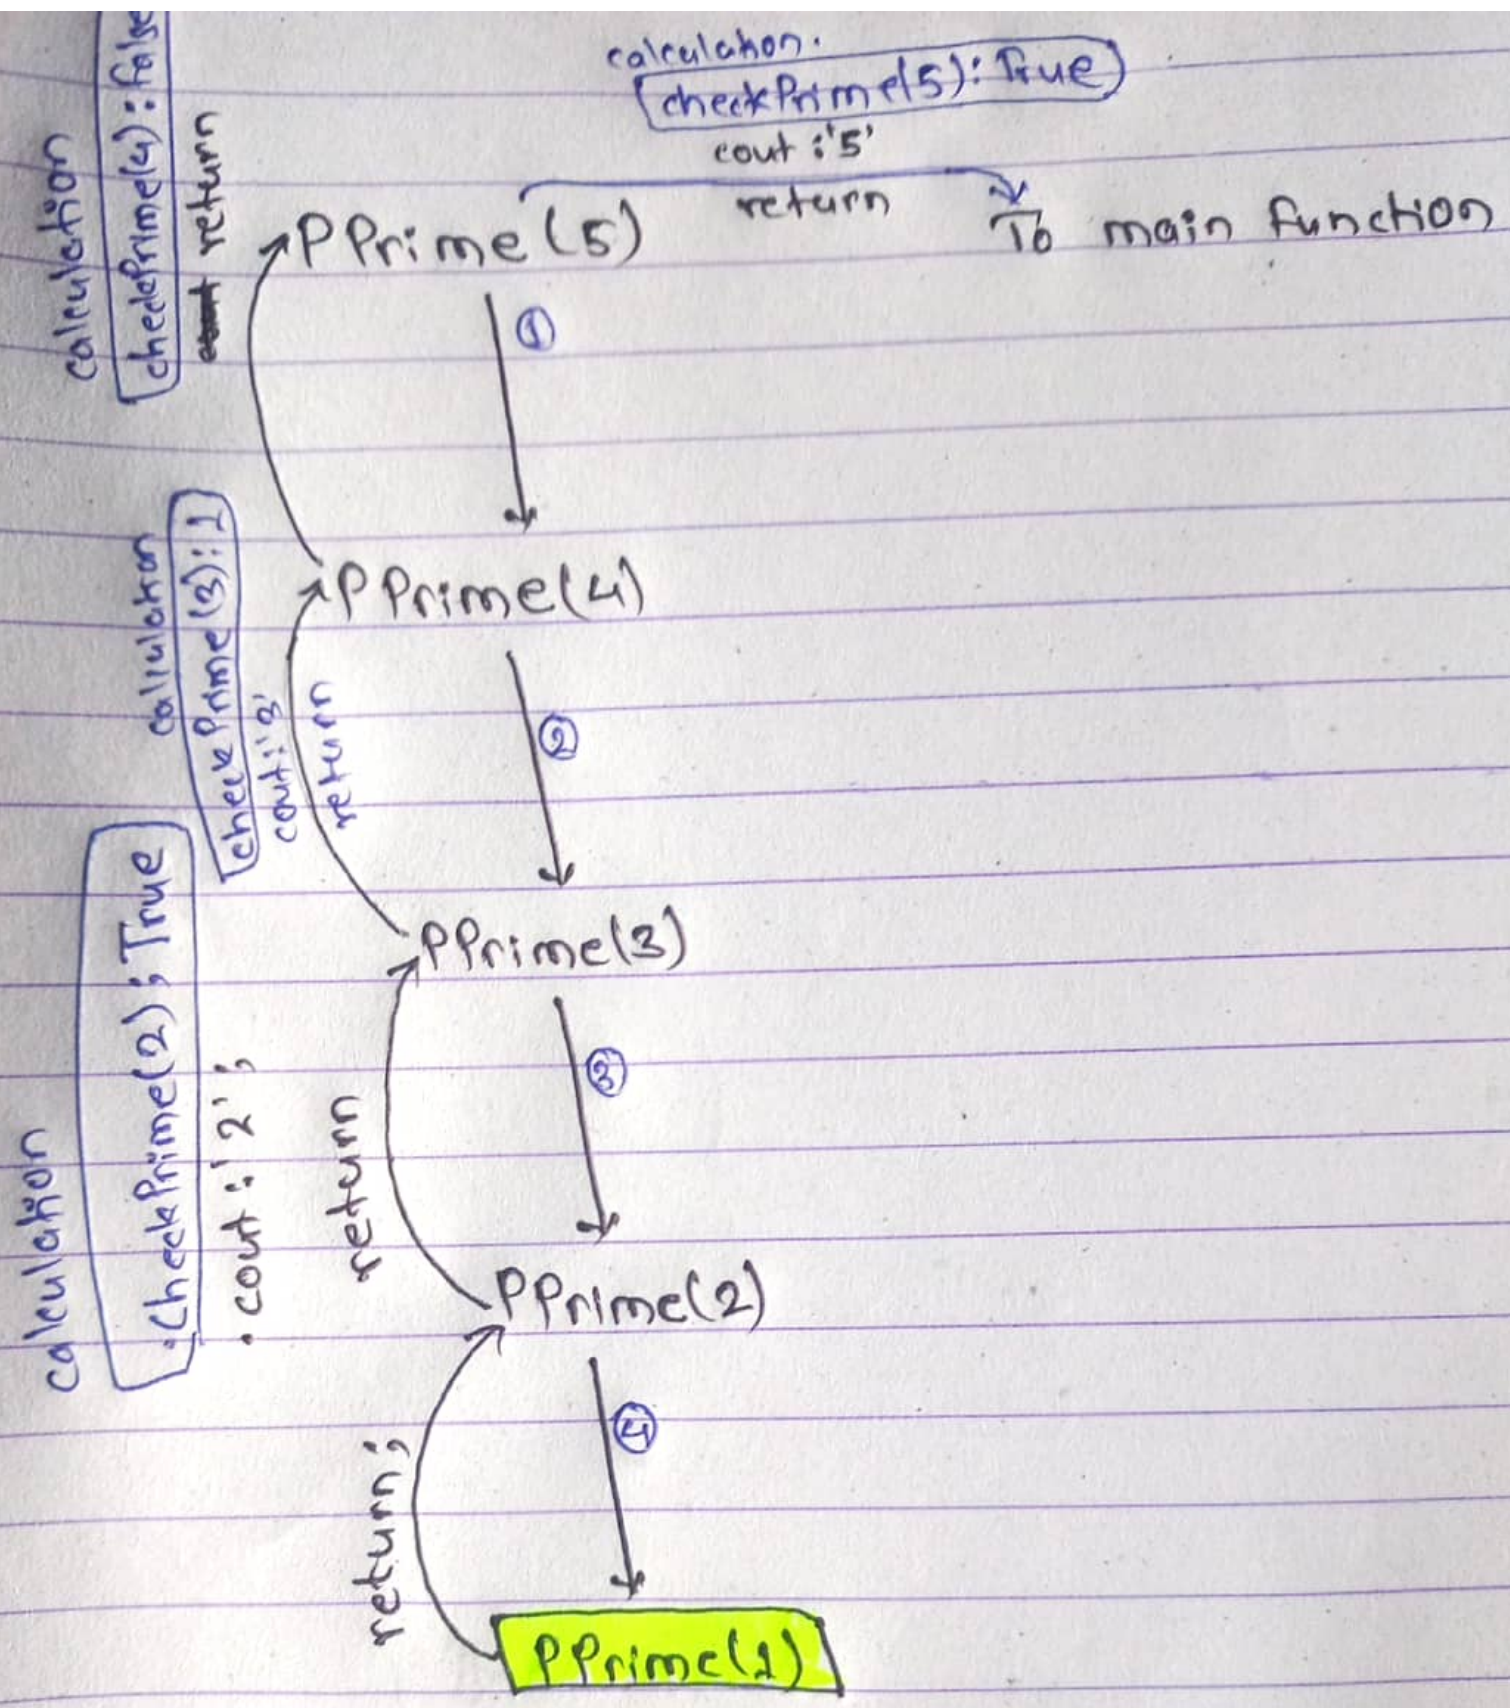 calculation.
checkPrime(5): True
cout : '5'
return
PPrime (5)
To main function
calculation
checkPrime(4): false
return
①
PPrime(4)
calculation
checkPrime(3): 1
cout: '3'
return
②
PPrime(3)
calculation
.CheckPrime(2); True
.cout: '2';
return
③
PPrime(2)
return;
④
PPrime(1)